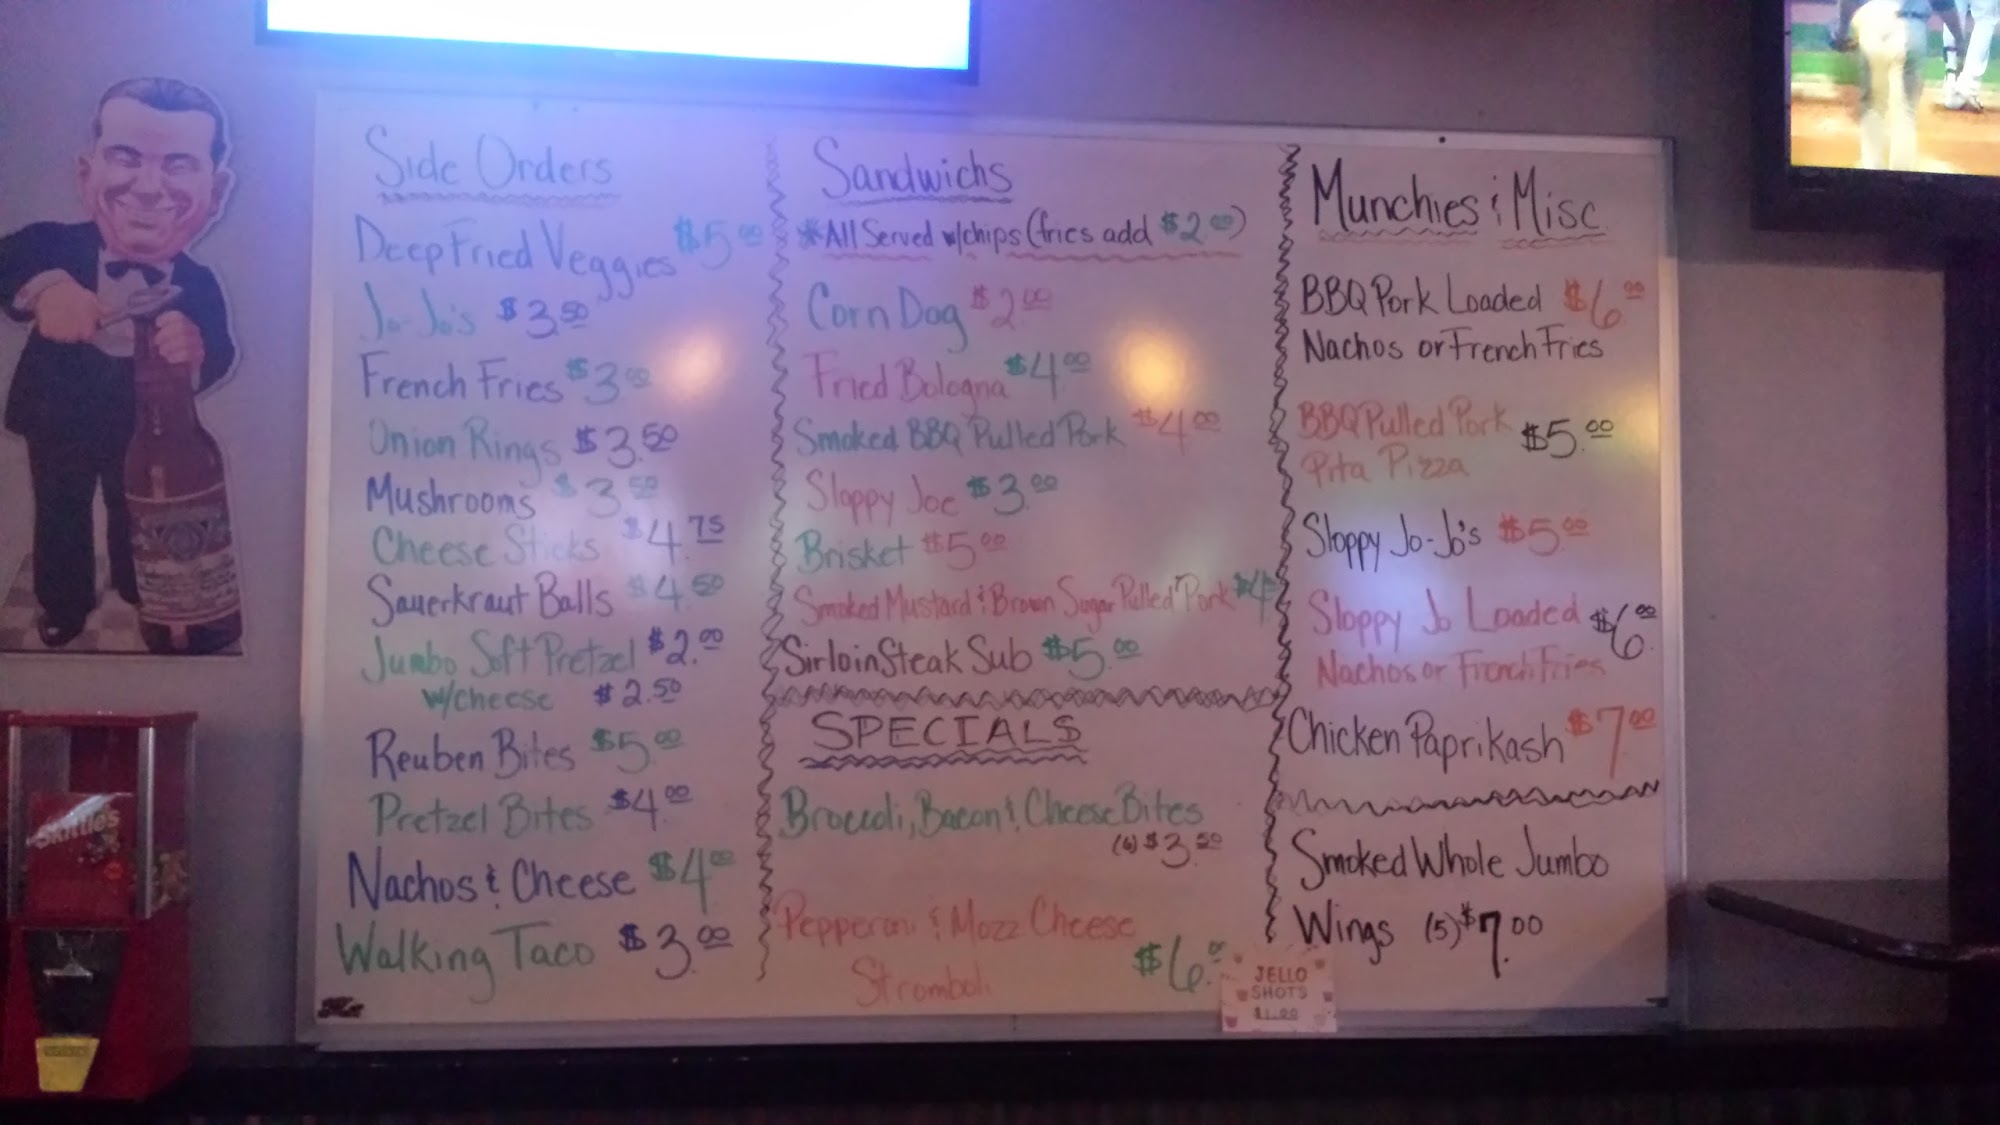 Side Orders
Deep Fried Veggies $5.00
Jo-Jo's $3.50
French Fries $3.00
Onion Rings $3.50
Mushrooms $3.50
Cheese Sticks $4.75
Sauerkraut Balls $4.50
Jumbo Soft Pretzel $2.00
w/cheese $2.50
Reuben Bites $5.00
Pretzel Bites $4.00
Nachos & Cheese $4.00
Walking Taco $3.00
Sandwichs
*All Served w/chips (fries add $2.00)
Corn Dog $2.00
Fried Bologna $4.00
Smoked BBQ Pulled Pork $4.00
Sloppy Joe $3.00
Brisket $5.00
Smoked Mustard & Brown Sugar Pulled Pork $4
Sirloin Steak Sub $5.00
SPECIALS
Broccoli, Bacon & Cheese Bites
(6) $3.50
Pepperoni & Mozz Cheese
Stromboli $6.00
Munchies & Misc
BBQ Pork Loaded $6.00
Nachos or French Fries
BBQ Pulled Pork $5.00
Pita Pizza
Sloppy Jo-Jo's $5.00
Sloppy Jo Loaded $6.00
Nachos or French Fries
Chicken Paprikash $7.00
Smoked Whole Jumbo
Wings (5) $7.00
JELLO
SHOTS
$1.00
Skittles